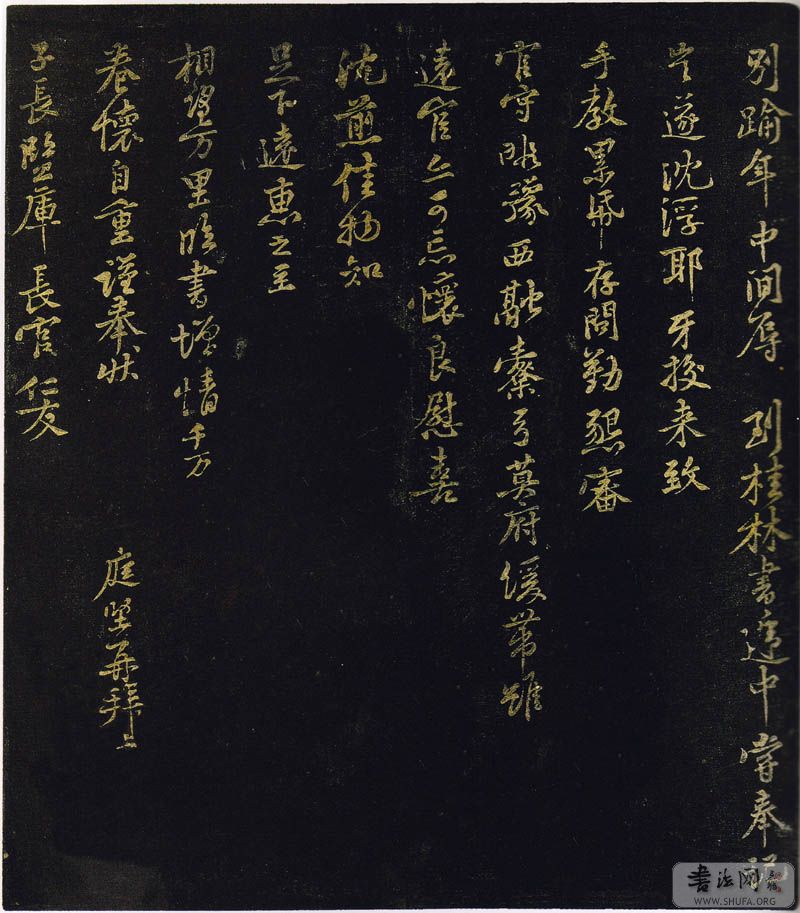 別踰年中間辱到桂林書遞中嘗奉
遂沈浮耶牙挍来致
手教累帋存問勤懇審
官守暇豫西融寮弓莫府緩帶雖
遠官亦可忘懷良慰喜
沈煎佳物知
足下遠惠之至
相望万里臨書增情千万
眷懷自重謹奉狀
庭堅再拜上
子長監庫長官仁友
書法网
WWW.SHUFA.ORG